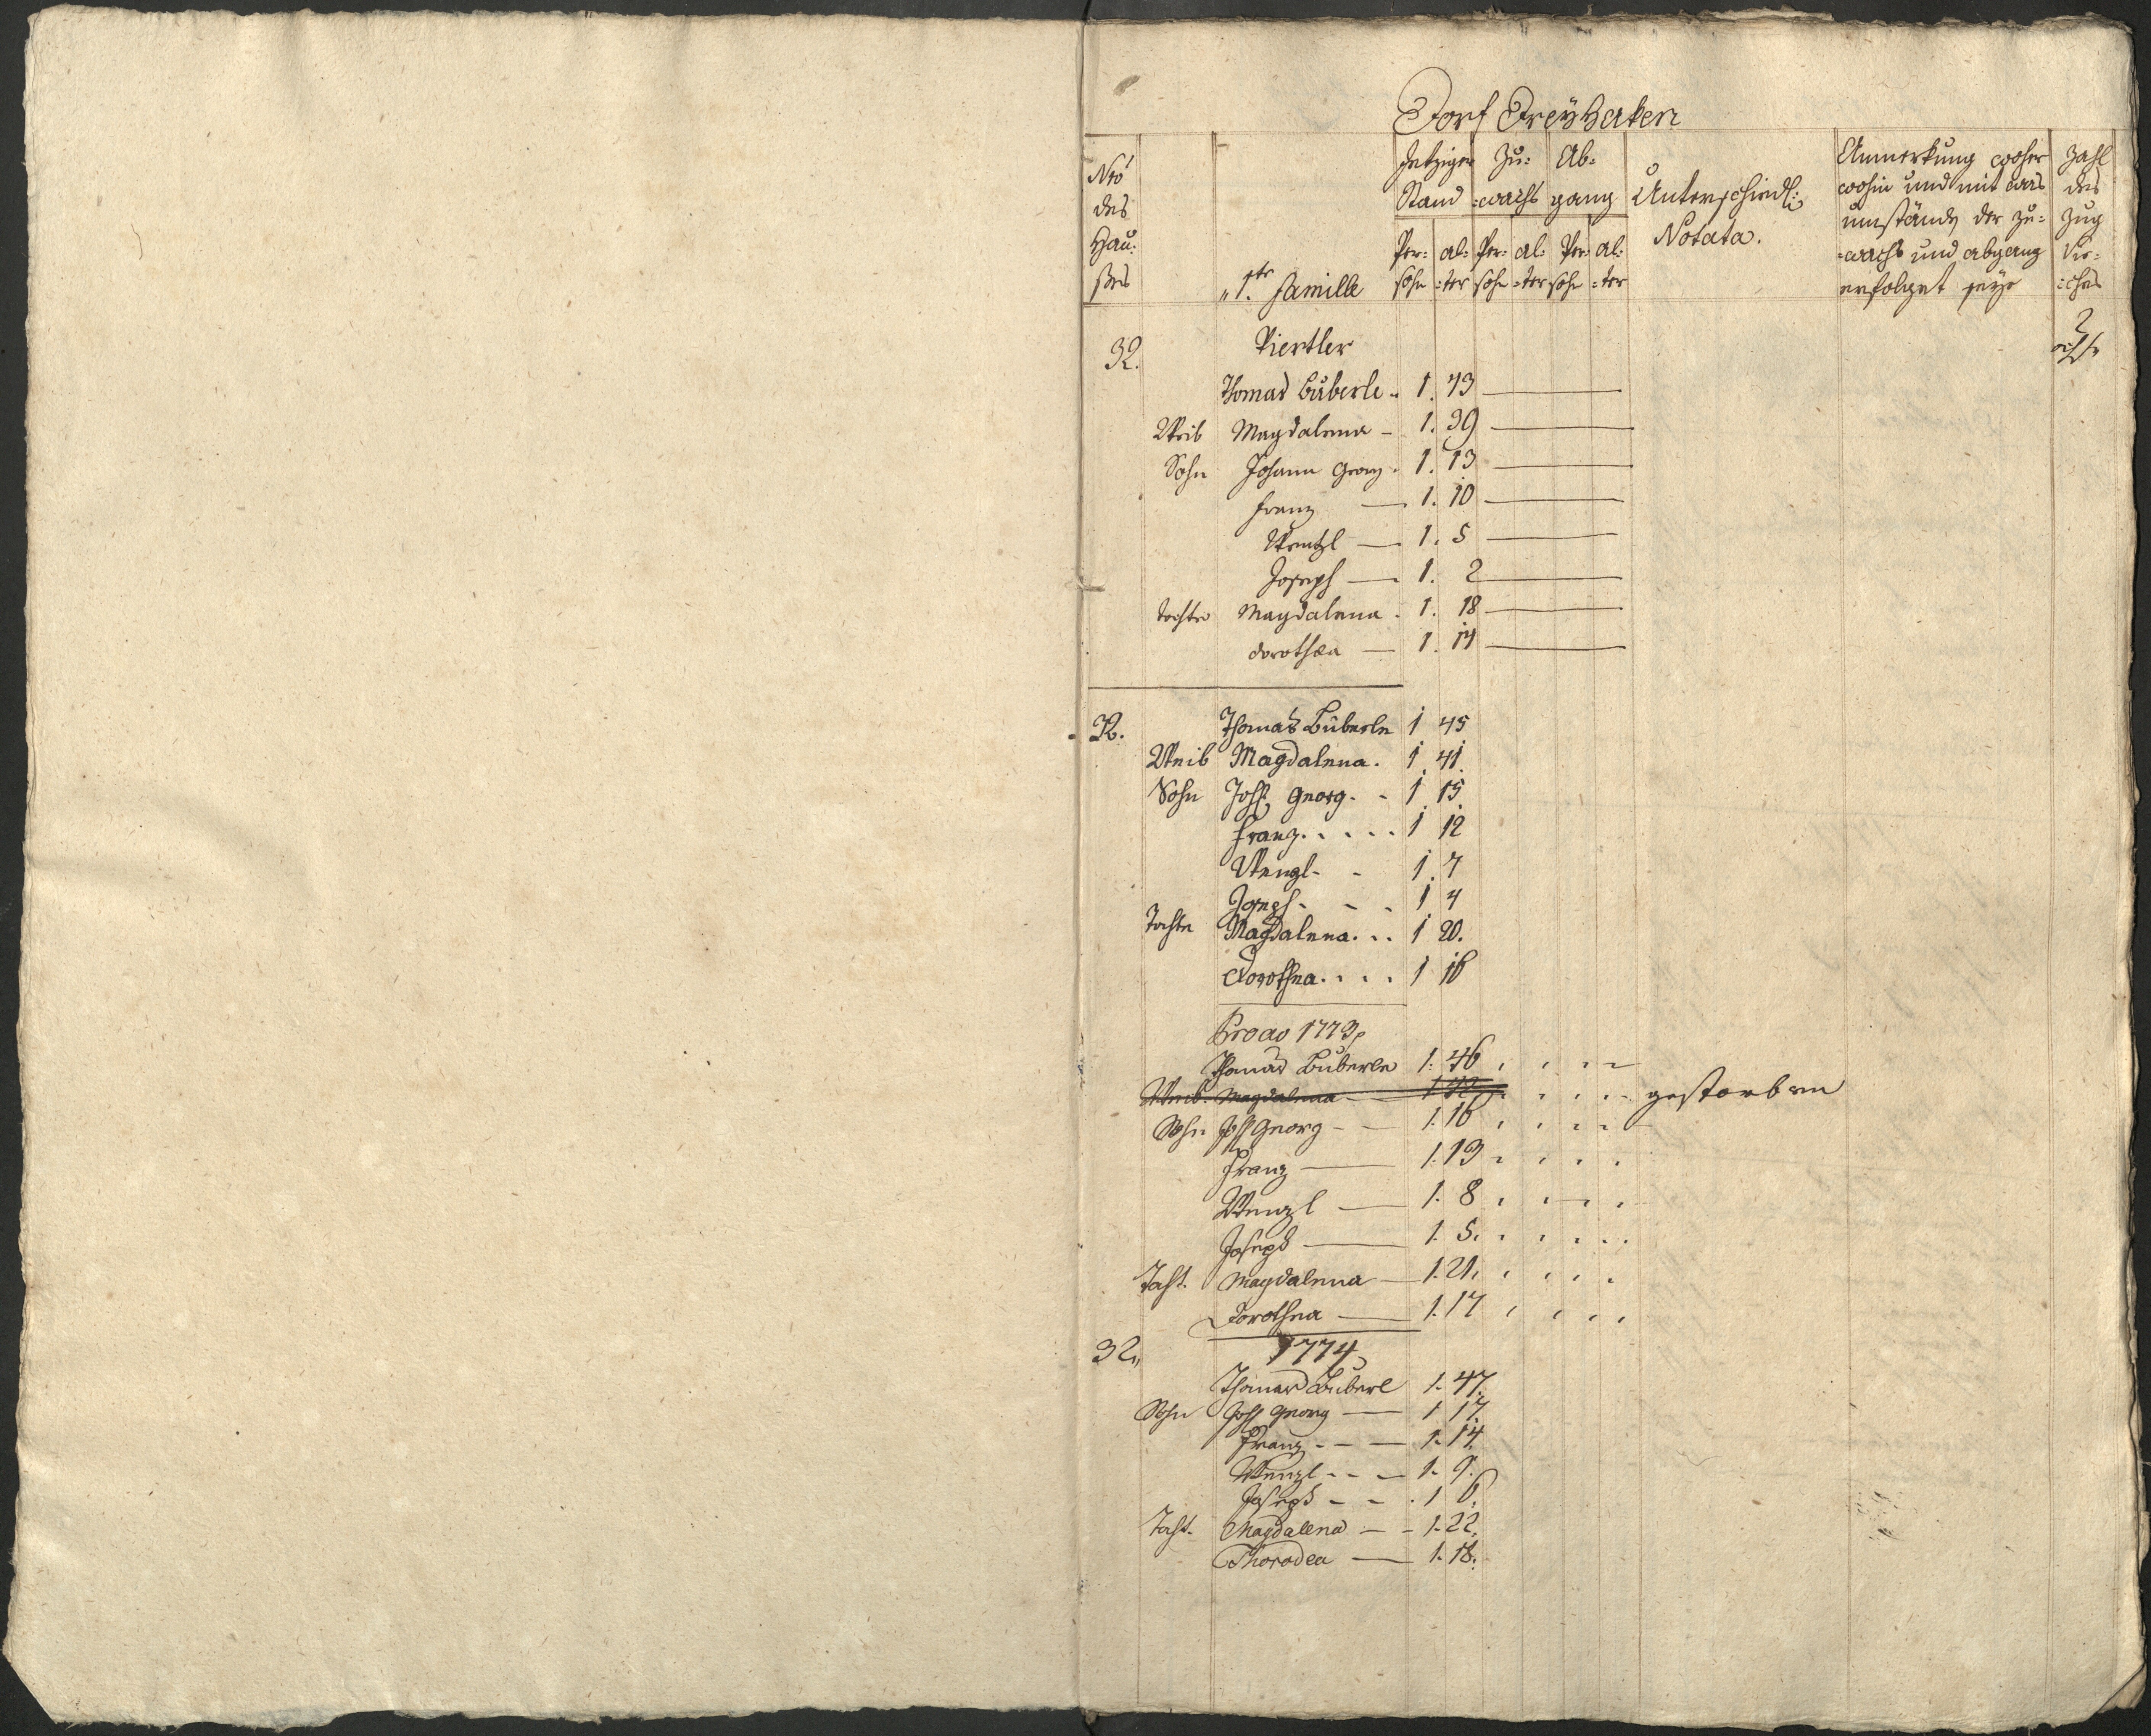 Dorf Dreyhaken
Nro
des
Hau:
ßes
1.te Familie
Jetziger
Stand
Zu:
:wachs
Ab:
gang
Per:
sohn
al:
:ter
Per:
sohn
al:
:ter
Per:
sohn
al:
:ter
Unterschiedl:
Notata.
Anmerkung woher
wohin und mit was
umständ der zu:
:wachs und abgang
erfolget seye
Zahl
des
Zug
Vie:
:ches
32. Viertler 2
Thomas Büberle 1. 43
Weib Magdalena 1. 39
Sohn Johann Georg 1. 13
Franz 1. 10
Wentzl 1. 5
Joseph 1. 2
Tochter Magdalena 1. 18
Dorothea 1. 14
32. Thomas Büberle 1 45
Weib Magdalena. 1 41
Sohn Joh. Georg 1 15
Franz 1 12
Wenzl 1 7
Joseph 1 4
Tochter Magdalena 1 20.
Dorothea 1 16
Pro ao 1773
Thomas Büberle 1. 46
Weib. Magdalena 1 42 gestorben
Sohn Joh Georg 1. 16
Franz 1. 13
Wenzl 1. 8
Joseph 1. 5
Tocht. Magdalena 1. 21
Dorothea 1. 17
32 1774
Thomas Büberl 1. 47
Sohn Joh Georg 1 17
Franz 1. 14
Wenzl 1. 9
Joseph 1 6
Tocht. Magdalena 1. 22
Thorodea 1. 18.